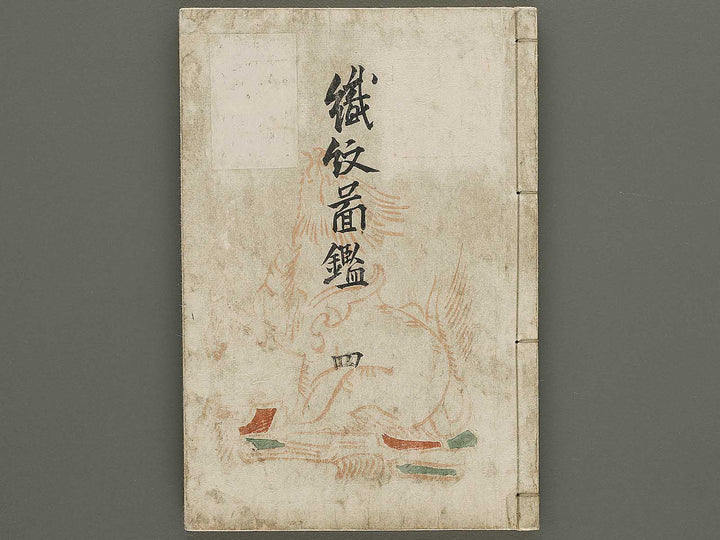 織紋圖鑑 四